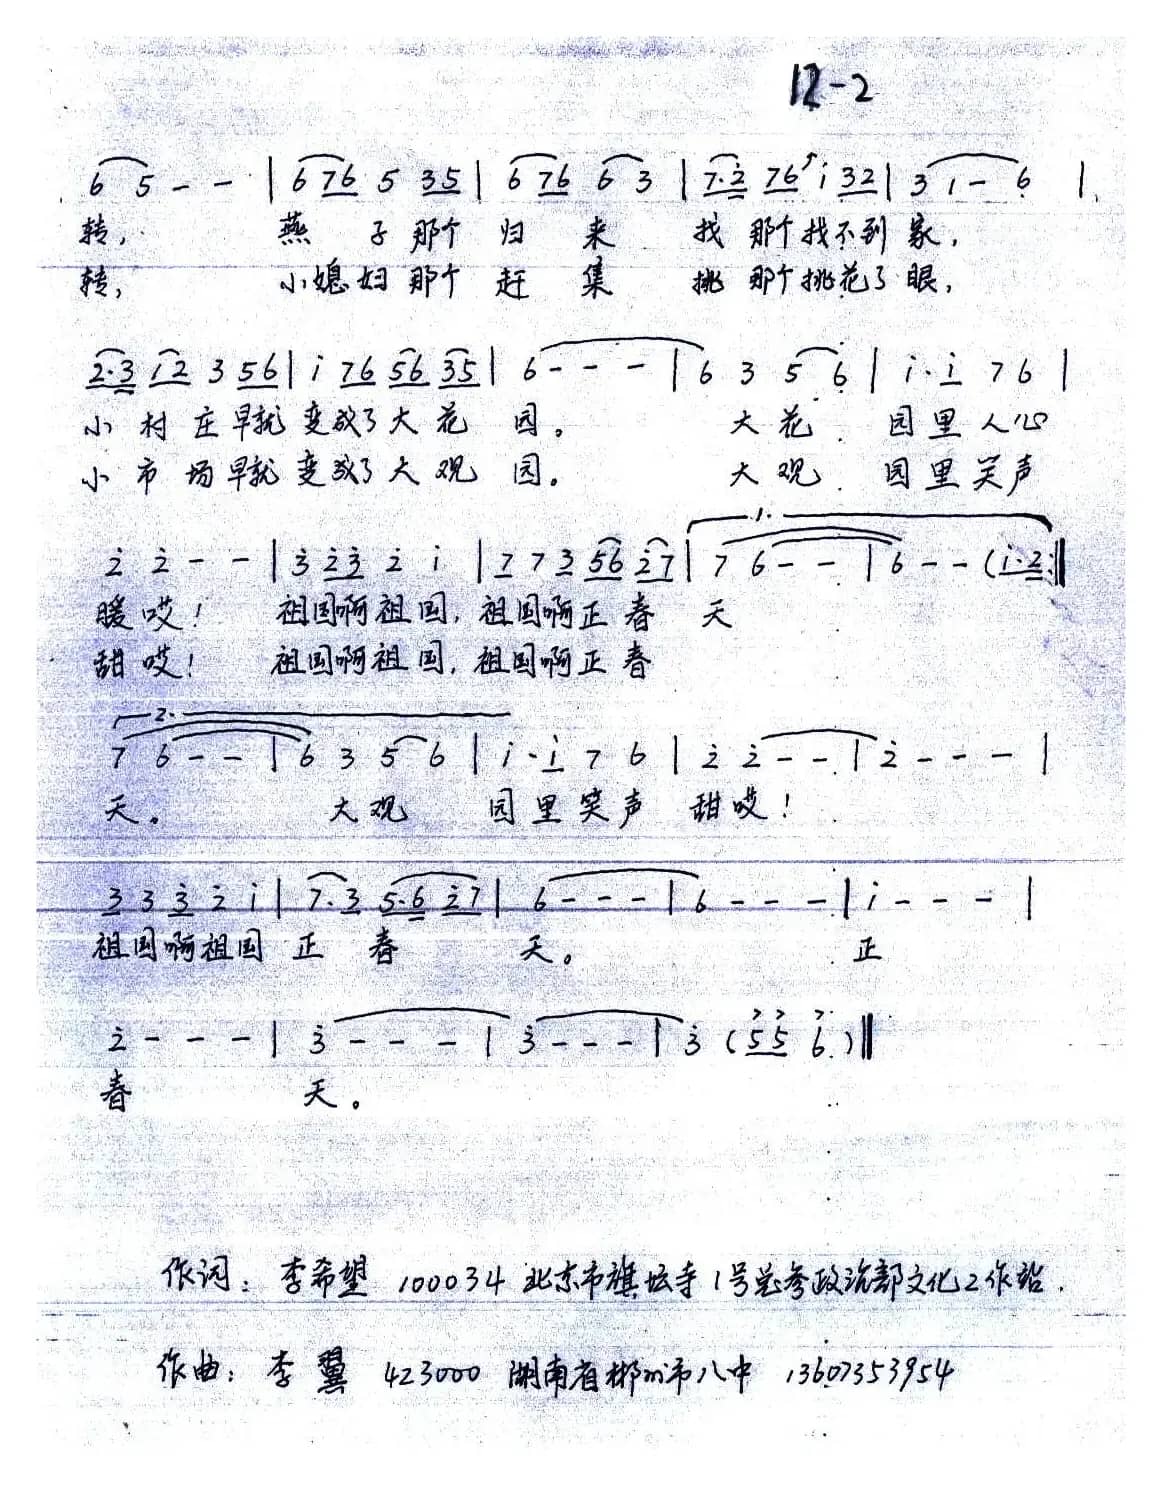 12-2
6 5 - - | 6 76 5 35 | 6 76 6 3 | 7·2 76 i 32 | 3 1 - 6 |
转， 燕子那个归来 找那个找不到家，
转， 小媳妇那个赶集 挑那个挑花了眼，
2·3 i2 3 56 | i 76 56 35 | 6 - - - | 6 3 5 6 | i· i 7 6 |
小村庄早就变成了大花园。 大花园里人心
小市场早就变成了大观园。 大观园里笑声
2 2 - - | 3 23 2 i | 7 7 3 56 27 | 1. 7 6 - - | 6 - - (i·2 :‖
暖哎！ 祖国啊祖国，祖国啊正春天
甜哎！ 祖国啊祖国，祖国啊正春
2. 7 6 - - | 6 3 5 6 | i· i 7 6 | 2 2 - - | 2 - - - |
天。 大观园里笑声甜哎！
3 3 3 2 i | 7·3 5·6 27 | 6 - - - | 6 - - - | i - - - |
祖国啊祖国正春天。 正
2 - - - | 3 - - - | 3 - - - | 3 (55 6) ‖
春 天。
作词：李希望 100034 北京市旗坛寺1号总参政治部文化工作站.
作曲：李翼 423000 湖南省郴州市八中 13607353954